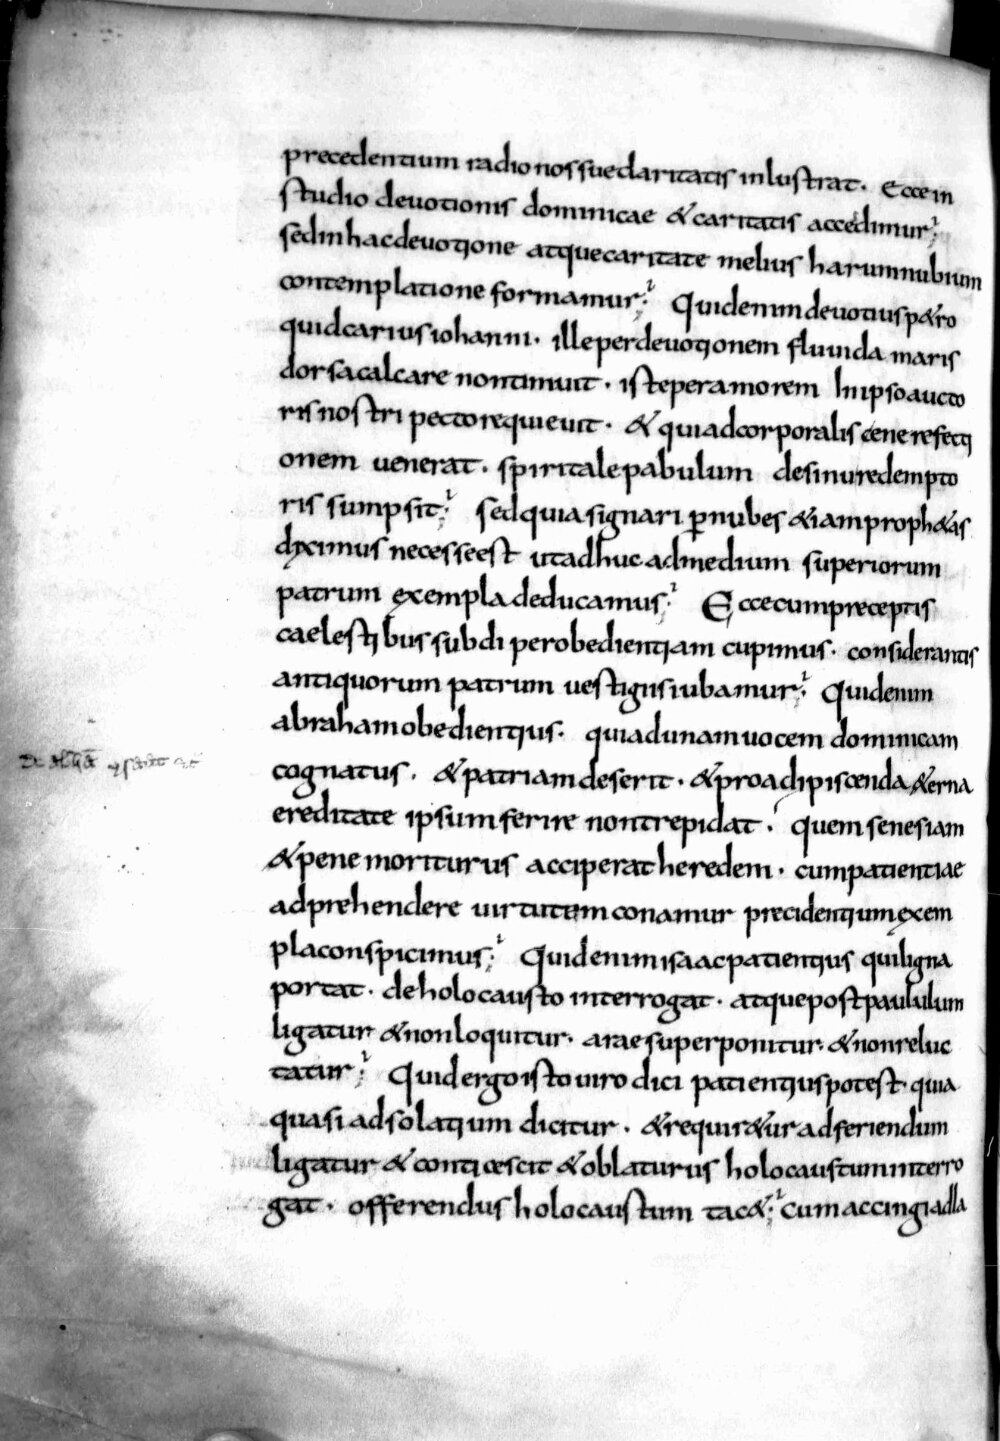 precedentium radio nos sue claritatis inlustrat. Ecce in
studio devotionis dominicae & caritatis accedimur;
sed in hac devotione atque caritate melius harum nubium
contemplatione formamur; Quid enim devotius p&ro
quid carius iohanni. ille per devotionem fluvida maris
dorsa calcare non timuit. iste per amorem In ipso aucto
ris nostri pectore quievit. & qui ad corporalis cene refecti
onem venerat. spiritale pabulum de sinu redempto
ris sumpsit; sed quia signari p nubes &iam proph&as
diximus necesse est ut adhuc ad medium superiorum
patrum exempla deducamus; Ecce cum preceptis
caelestibus subdi per obedientiam cupimus. considerantis
antiquorum patrum vestigiis iubamur; Quid enim
abraham obedientius. qui ad unam vocem dominicam
cognatus. & patriam deserit. & pro adipiscenda &erna
ereditate ipsum ferire non trepidat. quem senes iam
& pene moriturus acciperat heredem. cum patientiae
adprehendere virtutem conamur precidentium exem
pla conspicimus; Quid enim isaac patientius qui ligna
portat. de holocausto interrogat. atque post paululum
ligatur & non loquitur. arae superponitur. & non reluc
tatur; Quid ergo isto viro dici patientius potest. quia
quasi ad solatium dicitur. & requir&ur ad feriendum
ligatur & conticescit & oblaturus holocaustum interro
gat. offerendus holocaustum tac&; cum accingi ad la